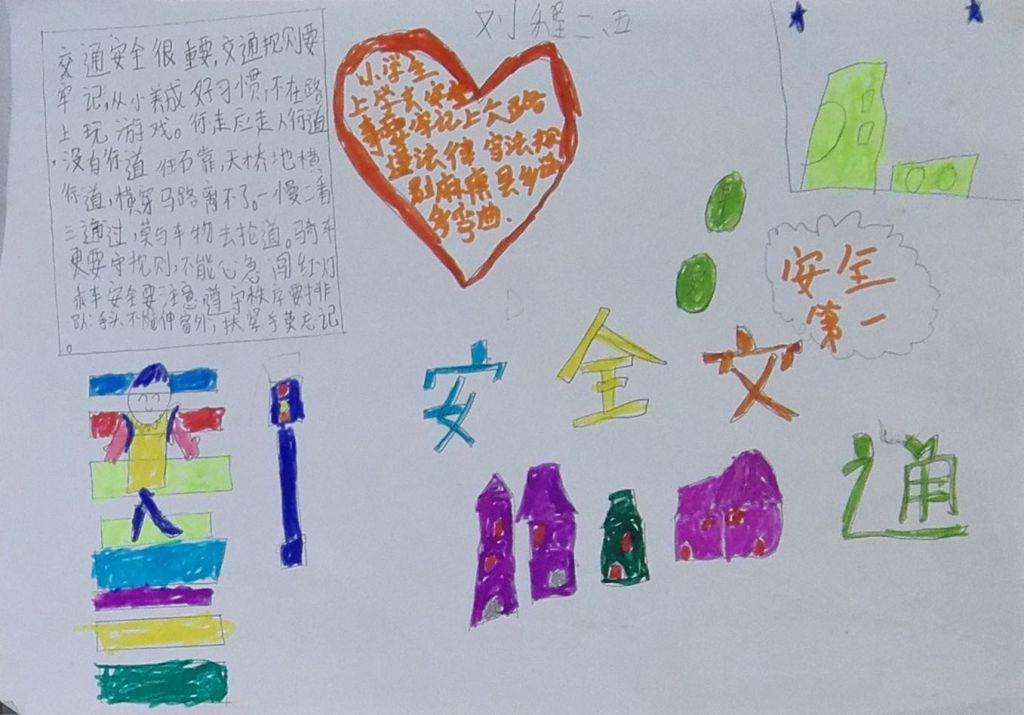 刘程二五
交通安全很重要,交通规则要
牢记,从小养成好习惯,不在路
上玩游戏。行走应走人行道
,没有行道往右靠,天桥地横
行道,横穿马路离不了。一慢二看
三通过,莫与车物去抢道。骑车
更要守规则,不能心急闯红灯
乘车安全要注意遵守秩序要排
队:手头不能伸窗外,扶紧手莫忘记
。
小学生
上学去安全
事要牢记上大路
遵法律守法规
别麻痹
多弯曲.
安全
第一
安全交
通